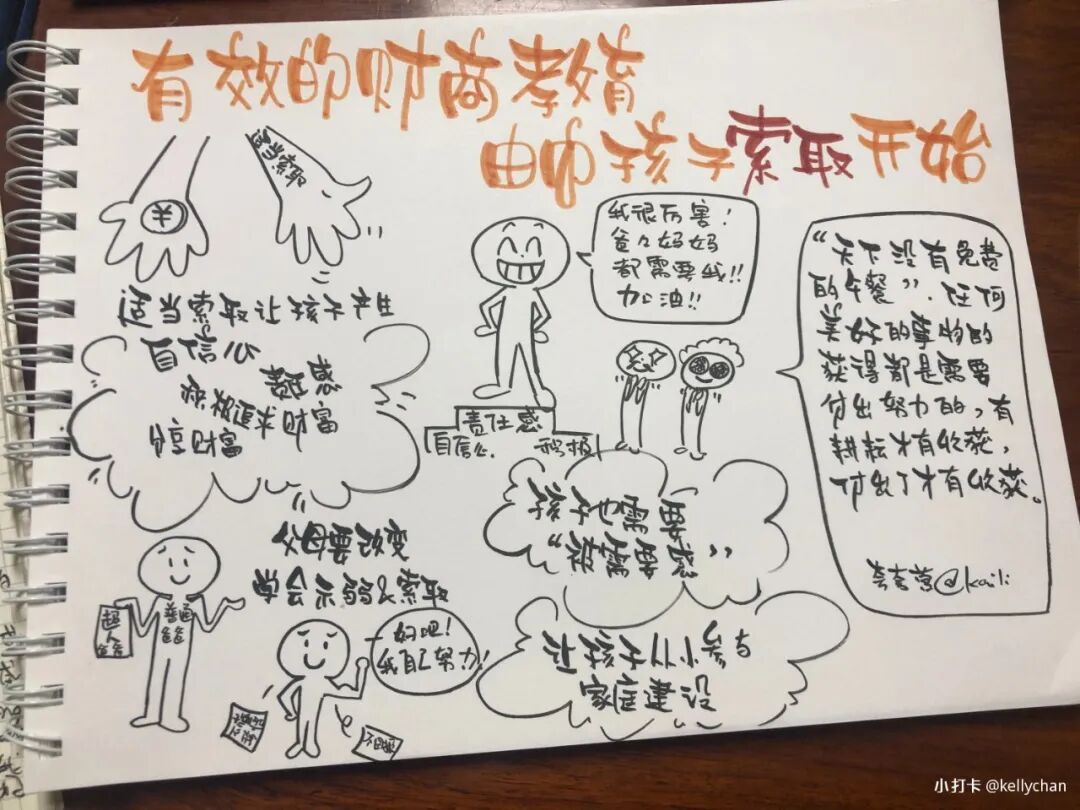 有效的财商教育
由向孩子索取开始
¥
适当索取
适当索取让孩子产生
自信心
积极追求财富
惜财富
我很厉害！
爸々妈妈
都需要我!!
加油!!
责任感
自信心
积极
“天下没有免费
的午餐”，任何
美好的事物的
获得都是需要
付出努力的，有
耕耘才有收获，
付出了才有收获。
@kaili
父母要改变
学会示弱&索取
超人
普通
好吧！
我自己努力！
孩子也需要
“被需要感”
让孩子从小参与
家庭建设
小打卡 @kellychan